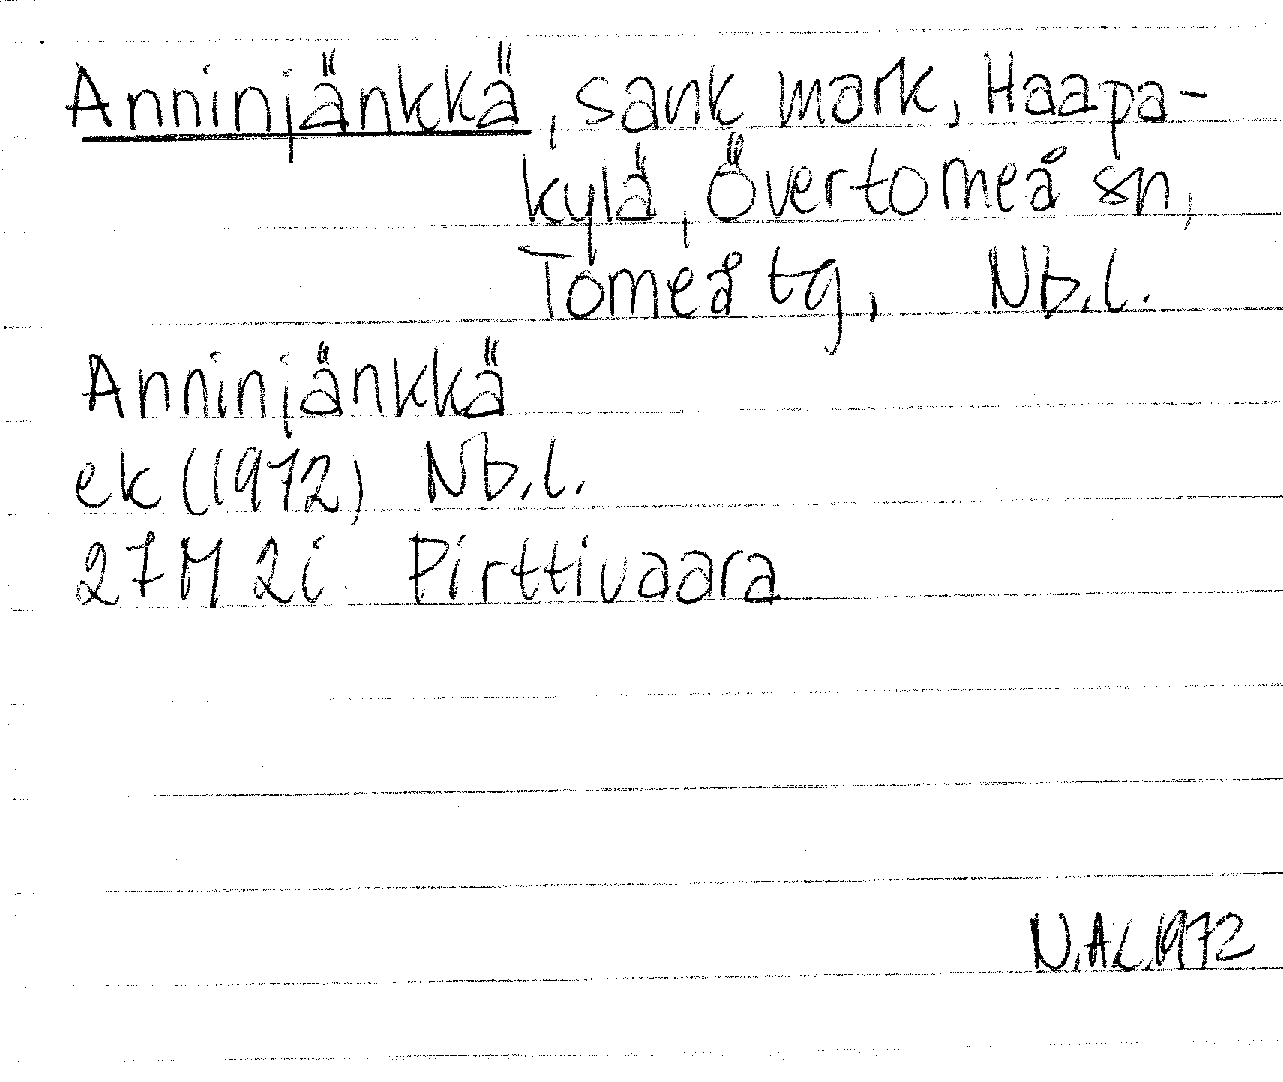 Anninjänkkä, sank mark, Haapa-
kylä, Övertorneå sn,
Torneå tg, Nb.l.
Anninjänkkä
ek (1972) Nb.l.
27M 2i Pirttivaara
N.A.L.1972